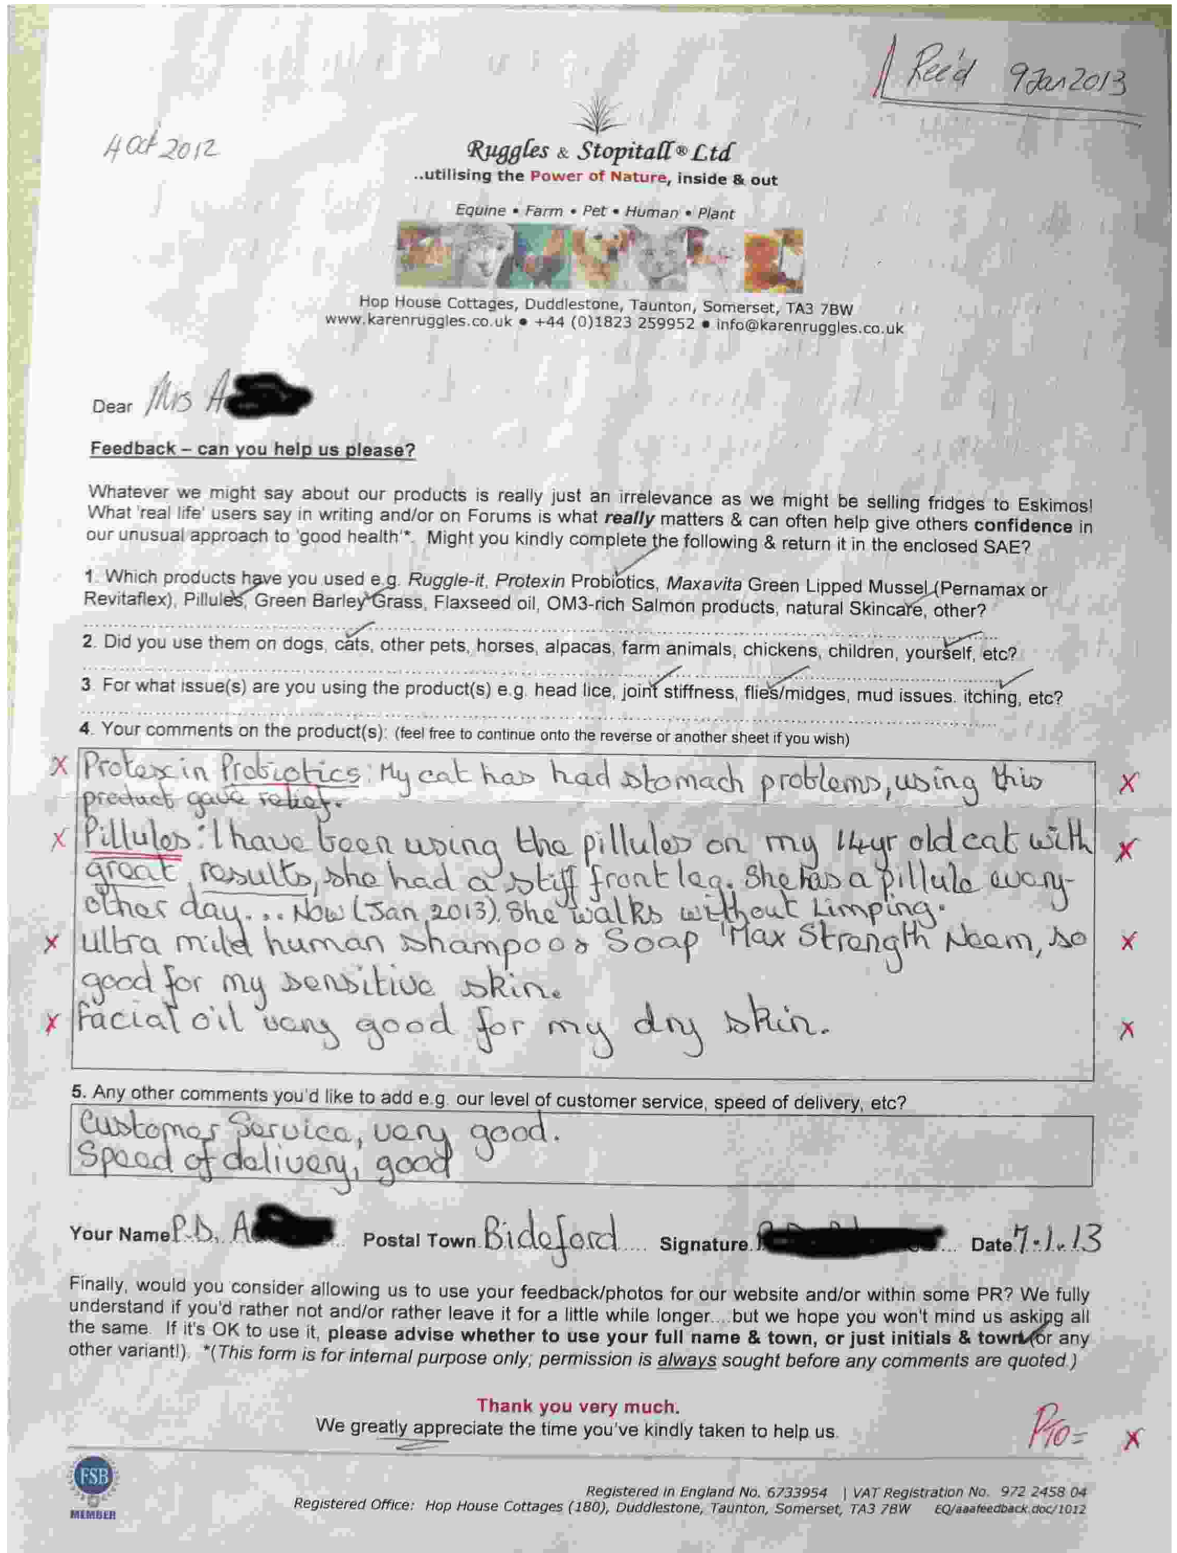 Rec'd 9 Jan 2013
4 Oct 2012
Ruggles & Stopitall® Ltd
..utilising the Power of Nature, inside & out
Equine • Farm • Pet • Human • Plant
Hop House Cottages, Duddlestone, Taunton, Somerset, TA3 7BW
www.karenruggles.co.uk • +44 (0)1823 259952 • info@karenruggles.co.uk
Dear Mrs A
Feedback – can you help us please?
Whatever we might say about our products is really just an irrelevance as we might be selling fridges to Eskimos!
What 'real life' users say in writing and/or on Forums is what really matters & can often help give others confidence in
our unusual approach to 'good health'*. Might you kindly complete the following & return it in the enclosed SAE?
1. Which products have you used e.g. Ruggle-it, Protexin Probiotics, Maxavita Green Lipped Mussel (Pernamax or
Revitaflex), Pillules, Green Barley Grass, Flaxseed oil, OM3-rich Salmon products, natural Skincare, other?
2. Did you use them on dogs, cats, other pets, horses, alpacas, farm animals, chickens, children, yourself, etc?
3. For what issue(s) are you using the product(s) e.g. head lice, joint stiffness, flies/midges, mud issues. itching, etc?
4. Your comments on the product(s): (feel free to continue onto the reverse or another sheet if you wish)
x Protexin Probiotics: My cat has had stomach problems, using this x
product gave relief.
x Pillules: I have been using the pillules on my 14yr old cat with x
great results, she had a stiff front leg. She has a pillule every-
other day... Now (Jan 2013). She walks without Limping.
x ultra mild human shampoo & Soap 'Max Strength Neem, so x
good for my sensitive skin.
x Facial oil very good for my dry skin. x
5. Any other comments you'd like to add e.g. our level of customer service, speed of delivery, etc?
Customer Service, very good.
Speed of delivery, good
Your Name P.D. A Postal Town Bideford Signature Date 7.1.13
Finally, would you consider allowing us to use your feedback/photos for our website and/or within some PR? We fully
understand if you'd rather not and/or rather leave it for a little while longer....but we hope you won't mind us asking all
the same. If it's OK to use it, please advise whether to use your full name & town, or just initials & town (or any
other variant!). *(This form is for internal purpose only; permission is always sought before any comments are quoted.)
Thank you very much.
We greatly appreciate the time you've kindly taken to help us.
x
FSB
MEMBER
Registered in England No. 6733954 | VAT Registration No. 972 2458 04
Registered Office: Hop House Cottages (180), Duddlestone, Taunton, Somerset, TA3 7BW EQ/aaafeedback.doc/1012